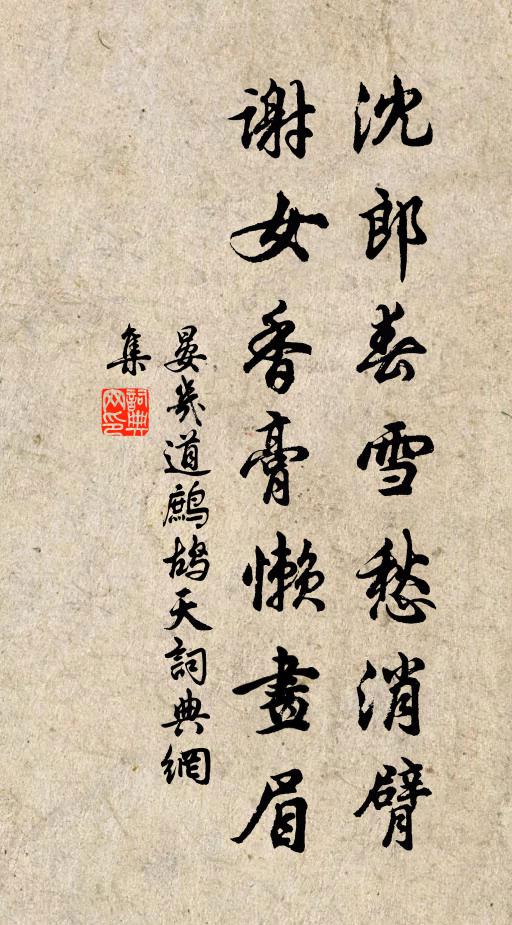 沈郎春雪愁消臂
謝女香膏懶畫眉
晏幾道鷓鴣天詞典網
集
詞典網印